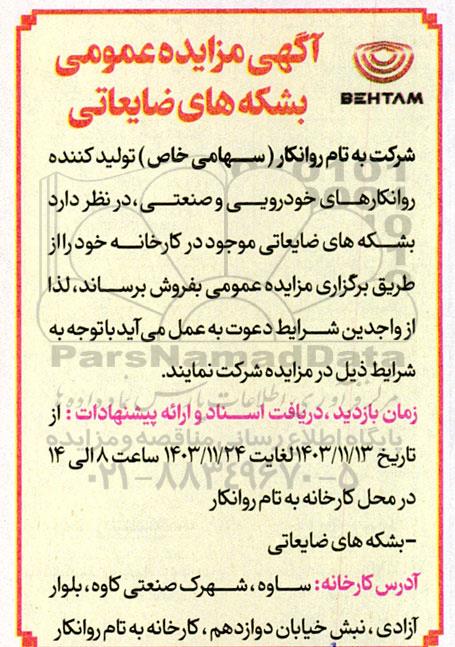 آگهی مزایده عمومی
بشکه های ضایعاتی
BEHTAM
شرکت به تام روانکار (سهامی خاص) تولید کننده
روانکارهای خودرویی و صنعتی، در نظر دارد
بشکه های ضایعاتی موجود در کارخانه خود را از
طریق برگزاری مزایده عمومی بفروش برساند، لذا
از واجدین شرایط دعوت به عمل می آید با توجه به
شرایط ذیل در مزایده شرکت نمایند.
زمان بازدید، دریافت اسناد و ارائه پیشنهادات: از
تاریخ ۱۴۰۳/۱۱/۱۳ لغایت ۱۴۰۳/۱۱/۲۴ ساعت ۸ الی ۱۴
در محل کارخانه به تام روانکار
-بشکه های ضایعاتی
آدرس کارخانه: ساوه، شهرک صنعتی کاوه، بلوار
آزادی، نبش خیابان دوازدهم، کارخانه به تام روانکار
ParsNamadData
پایگاه اطلاع رسانی مناقصه و مزایده
۰۲۱-۸۸۳۴۹۶۷۰-۵